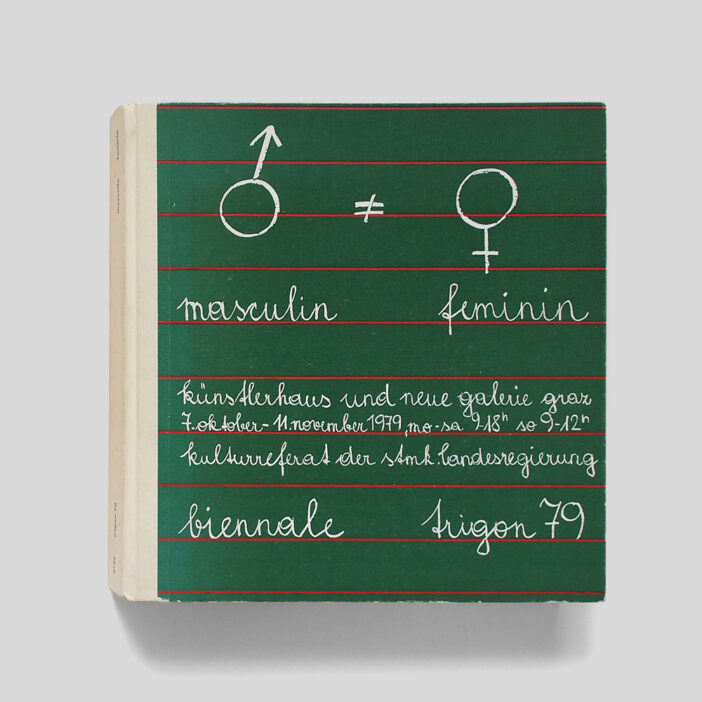 ♂ ≠ ♀
masculin feminin
künstlerhaus und neue galerie graz
7. oktober - 11. november 1979, mo-sa 9-18h so 9-12h
kulturreferat der stmk. landesregierung
biennale trigon 79
masculin feminin
trigon 79
graz